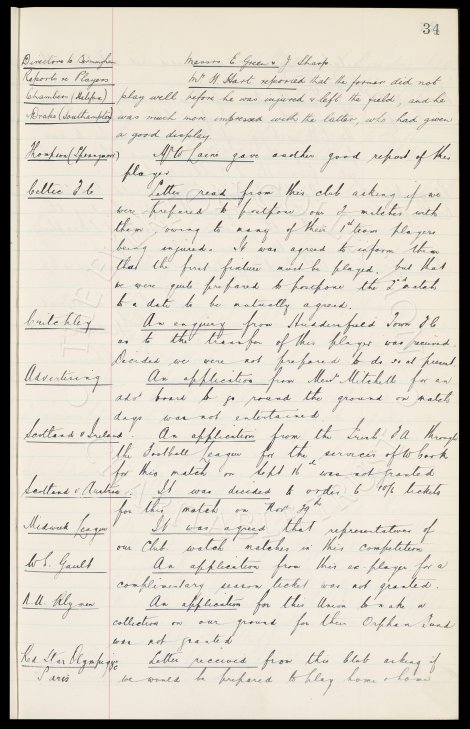 34
Directors to Birmingham Messrs E. Green & J Sharp
Reports re Players Mr H. Hart reported that the former did not
Chambers (Halifax) play well before he was injured & left the field, and he
Drake (Southampton) was much more impressed with the latter, who had given
a good display
Thompson ( Mr W Laine gave another good report of this
player
Celtic F.C. Letter read from this club asking if we
were prepared to postpone our 2 matches with
them, owing to many of their 1st team players
being injured. It was agreed to inform them
that the first fixture must be played, but that
we were quite prepared to postpone the 2nd match
to a date to be mutually agreed.
Critchley An enquiry from Huddersfield Town F.C
as to the transfer of this player was received.
Decided we were not prepared to do so at present
Advertising An application from Messrs Mitchells for an
advt board to go round the ground on match
days was not entertained
Scotland v Ireland. An application from the Irish F.A. through
the Football League for the services of W Cook
for this match on Sept 16th was not granted
Scotland v Austria. It was decided to order 6 10/6 tickets
for this match on Nov 29th
Midweek League It was agreed that representatives of
our Club watch matches in this competition
W.E. Gault An application from this ex player for a
complimentary season ticket was not granted.
N.U. Rlymen An application for this Union to make a
collection on our ground for their Orphan Fund
was not granted
Red Star Olympique Letter received from this Club asking if
Paris we would be prepared to play home & home